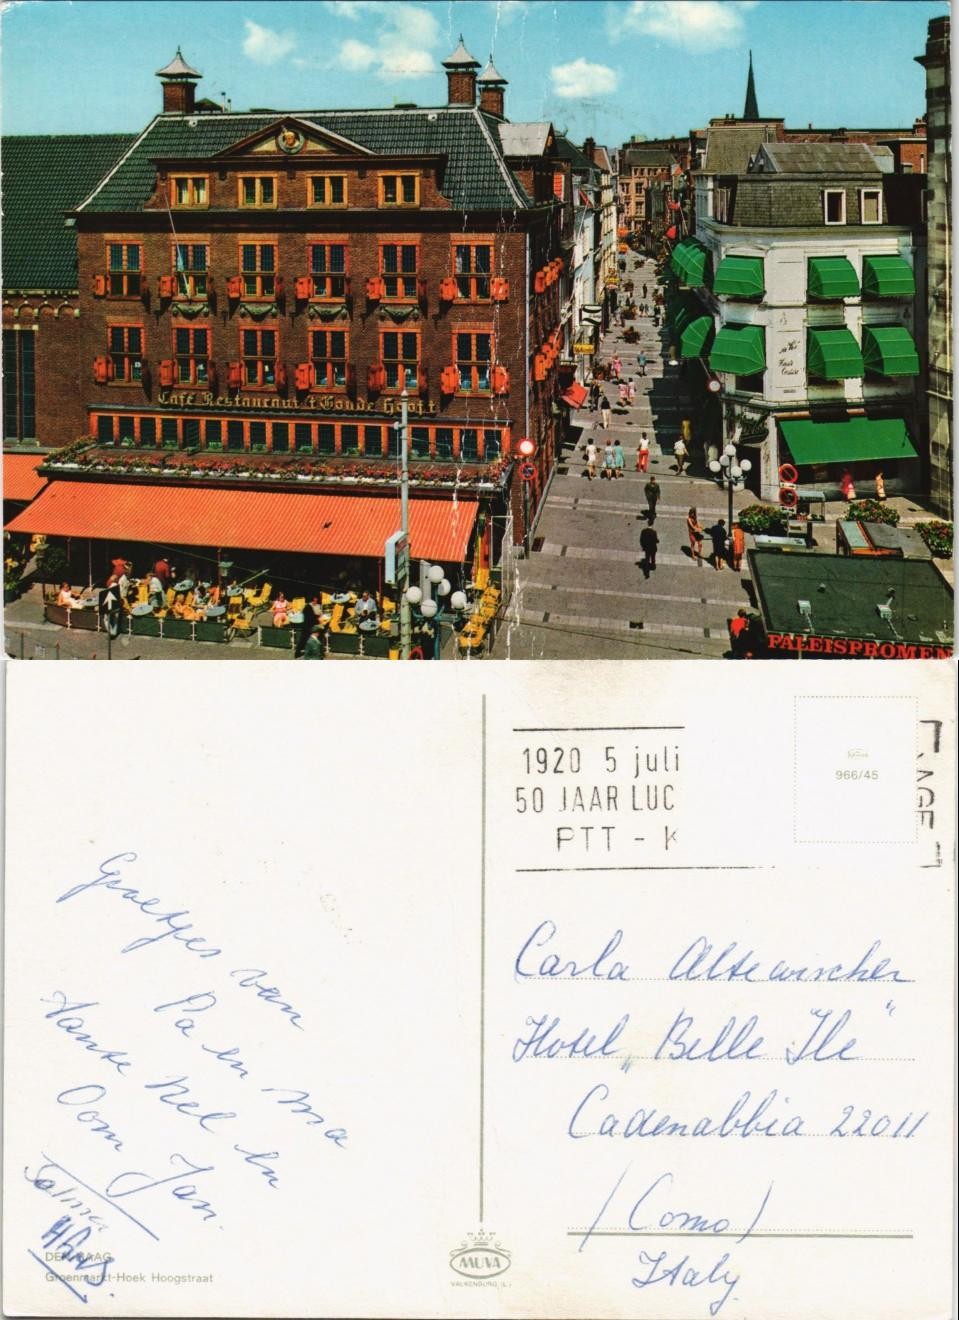 Café Restaurant 't Goude Hooft
PALEISPROMEN
1920 5 juli
50 JAAR LUC
PTT - K
966/45
Groetjes van
Pa en ma
Tante Nel en
Oom Jan.
Carla Altewischer
Hotel „Belle Ile"
Cadenabbia 22011
(Como)
Italy
DEN HAAG
Groenmarkt-Hoek Hoogstraat
MUVA
VALKENBURG (L.)